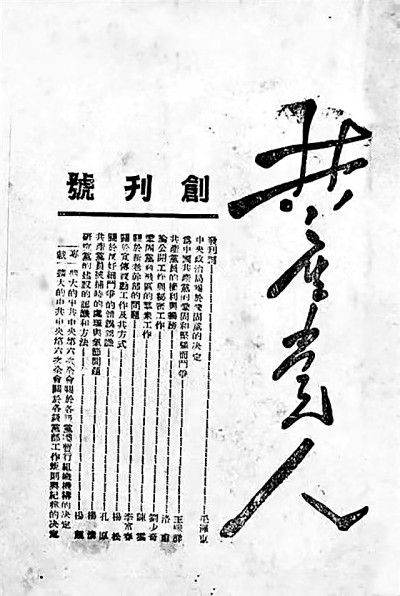 共产党人
創刊號
發刊詞 毛澤東
中央政治局關於鞏固黨的決定
為中國共產黨的鞏固和堅強而鬥爭 王稼祥
共產黨員的權利與義務 洛甫
論公開工作與秘密工作 劉少奇
鞏固黨與戰區的羣眾工作 陳雲
關於新老幹部的問題 李富春
關於宣傳鼓動工作及其方式 楊松
關於反奸細鬥爭的 孔原
共產黨員被捕時的處理與氣節問題 楊
研究黨的建設的認識和方法 楊
擴大的中共中央第六次全會關於各級黨暫行組織機構的決定
擴大的中共中央第六次全會關於各級黨部工作規則與紀律的決定